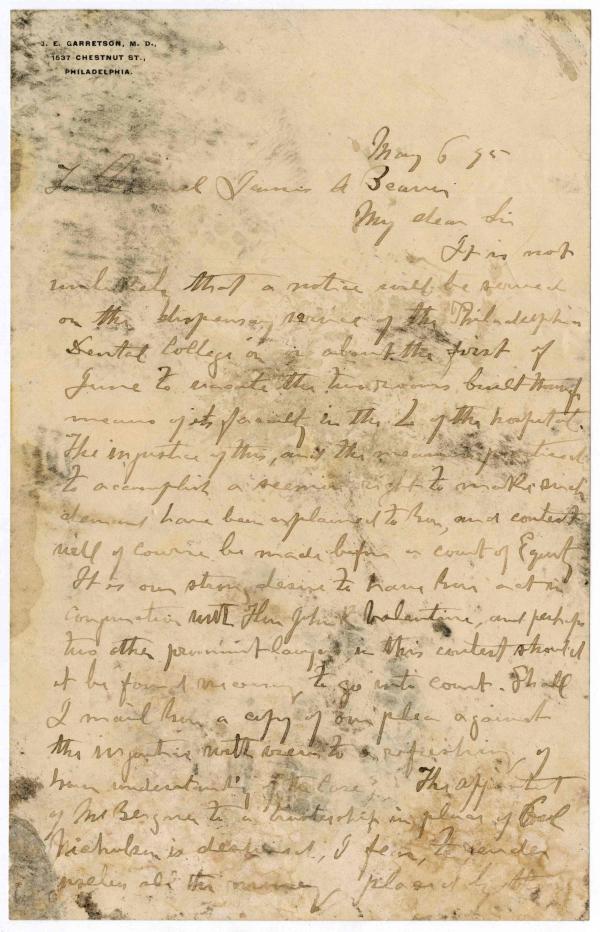 J. E. GARRETSON, M. D.,
1537 CHESTNUT ST.,
PHILADELPHIA.
May 6 95
To General James A Beaver
My dear Sir
It is not
unlikely that a notice will be served
on the dispensary service of the Philadelphia
Dental College on or about the first of
June to vacate the two rooms built through
means of its faculty in the L of the hospital.
The injustice of this, and the means
to accomplish a seeming right to make such
demand have been explained to you, and contest
will of course be made before a court of Equity
It is our strong desire to have you act in
conjunction with Hon John K Valentine, and perhaps
two other prominent lawyers in this contest should
it be found necessary to go into court. Shall
I mail you a copy of our plea against
the injustice with view to a refreshing of
your understanding of the case? The appointment
of Mr to a trusteeship in place of Col
Nicholson is designed, I fear, to render
useless all the money placed by the